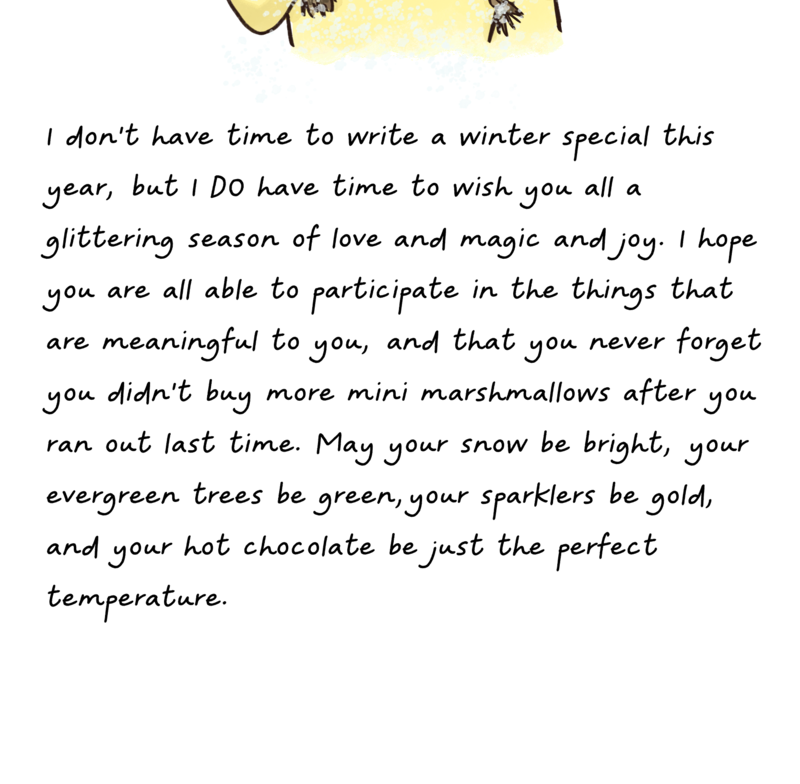 I don't have time to write a winter special this
year, but I DO have time to wish you all a
glittering season of love and magic and joy. I hope
you are all able to participate in the things that
are meaningful to you, and that you never forget
you didn't buy more mini marshmallows after you
ran out last time. May your snow be bright, your
evergreen trees be green, your sparklers be gold,
and your hot chocolate be just the perfect
temperature.